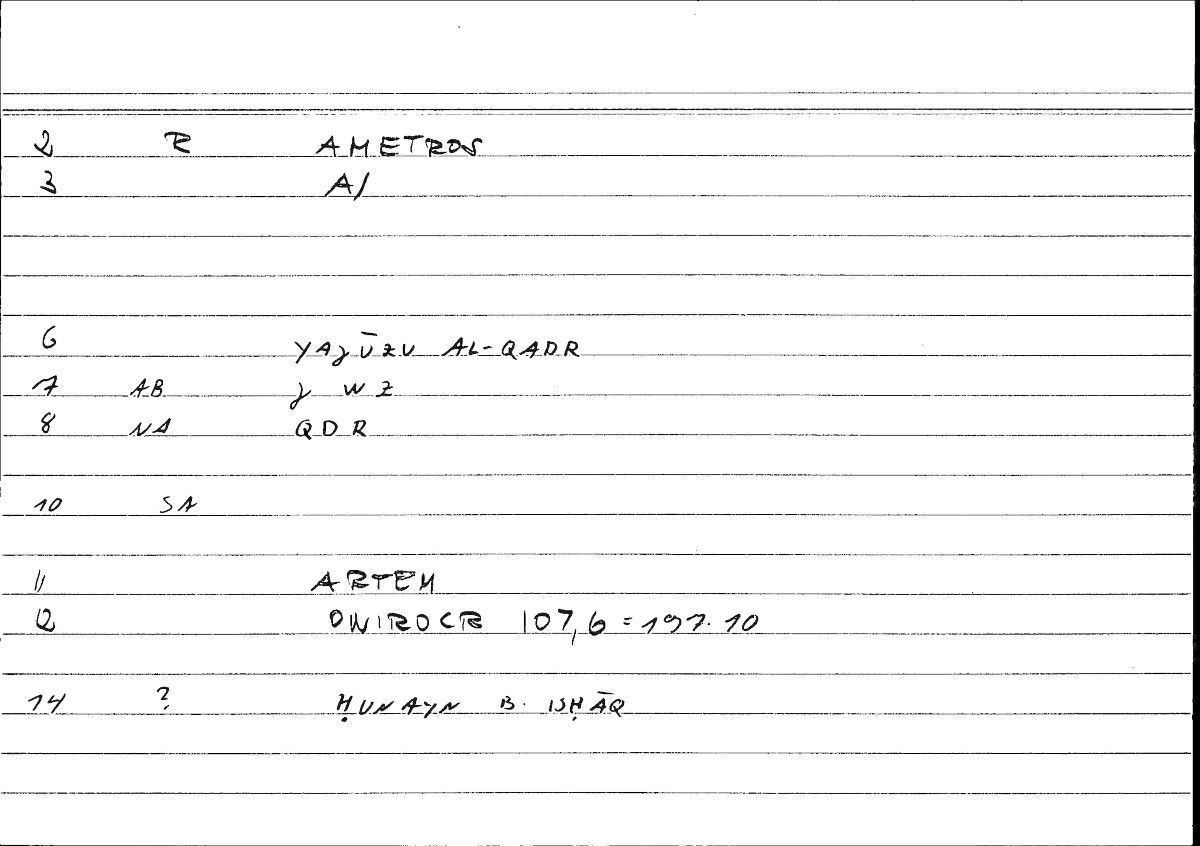 2 R AMETROS
3 A/
6 YAǧŪZU AL-QADR
7 AB ǧ W Z
8 NA QDR
10 SA
11 ARTEM
12 ONIROCR 107,6 = 197.10
14 ? ḤUNAYN B. ISḤĀQ